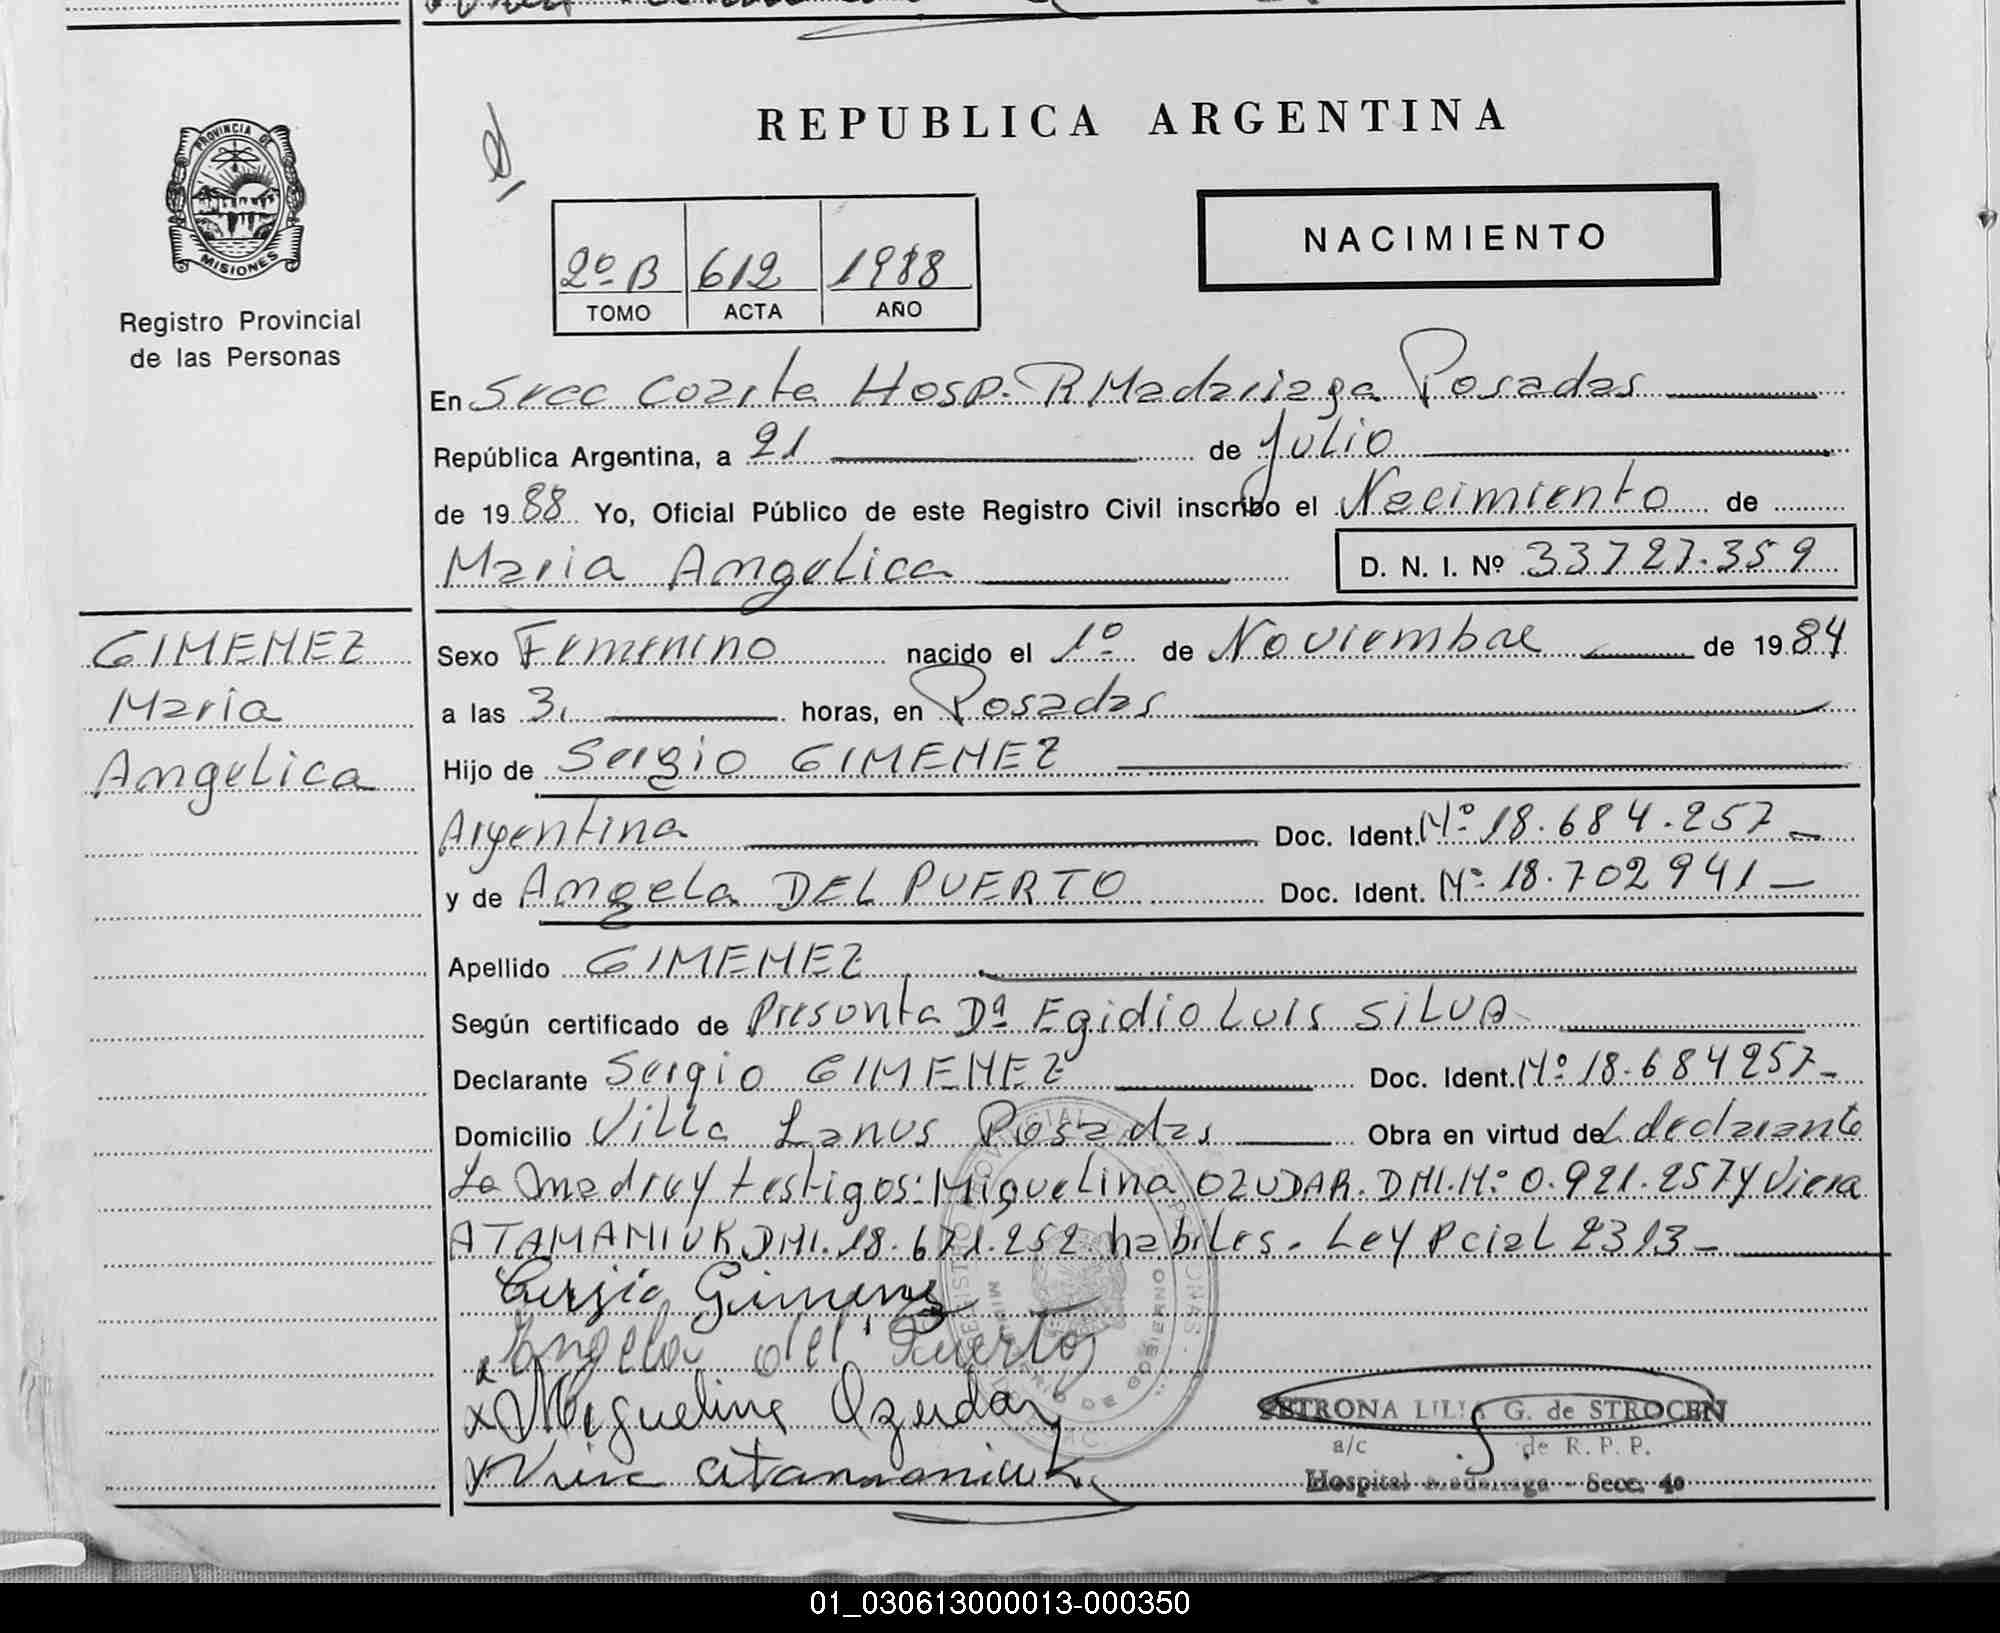 PROVINCIA DE
MISIONES
Registro Provincial
de las Personas
REPUBLICA ARGENTINA
NACIMIENTO
2º B 612 1988
TOMO ACTA AÑO
En Secc Cuarta Hosp. R Madariaga Posadas
República Argentina, a 21 de Julio
de 1988 Yo, Oficial Público de este Registro Civil inscribo el Nacimiento de
Maria Angelica D. N. I. Nº 33727.359
GIMENEZ
Maria
Angelica
Sexo Femenino nacido el 1º de Noviembre de 1984
a las 3, horas, en Posadas
Hijo de Sergio GIMENEZ
Argentina Doc. Ident. Nº 18.684.257
y de Angela DEL PUERTO Doc. Ident. Nº 18.702941
Apellido GIMENEZ
Según certificado de Presunta Dª Egidio Luis SILVA
Declarante Sergio GIMENEZ Doc. Ident. Nº 18.684257
Domicilio Villa Lanus Posadas Obra en virtud del declarante
La madre y testigos: Miguelina OZUDAR. DNI. Nº 0.921.257 y Viera
ATAMANIUK DNI. 18.671.252 habiles. Ley Pcial 2313
Sergio Gimenez
x Angela del Puerto
x Miguelina Ozudar
x Viera Atamaniuk
PETRONA LILIA G. de STROCEN
a/c de R. P. P.
Hospital Madariaga - Secc. 4ª
01_030613000013-000350